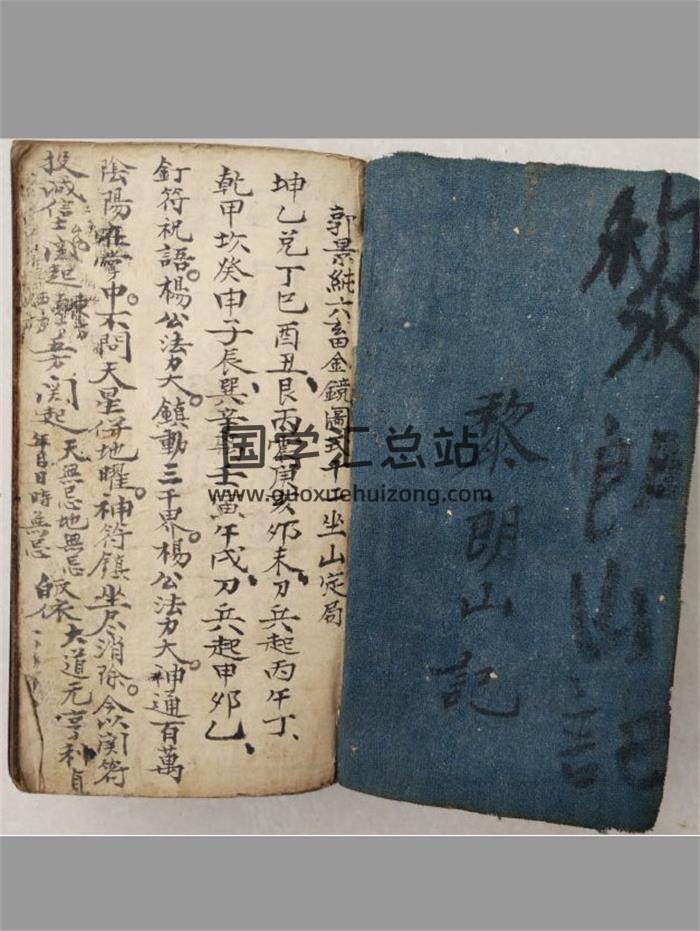 黎朗山記
黎朗山記
郭景純六畜金鏡圖式千工坐山定局
坤乙兑丁巳酉丑艮丙震庚亥卯未刀兵起丙午丁
乾甲坎癸申子辰巽辛離壬寅午戌刀兵起甲卯乙
釘符祝語楊公法力大鎮動三千界楊公法力大神通百萬
陰陽在掌中不問天星併地曜神符鎮坐尽消除今以
符
投誠信士 起 五方 起 天無忌地無忌
年月日時無忌
皈依大道元亨利貞
国学汇总站
www.guoxuehuizong.com